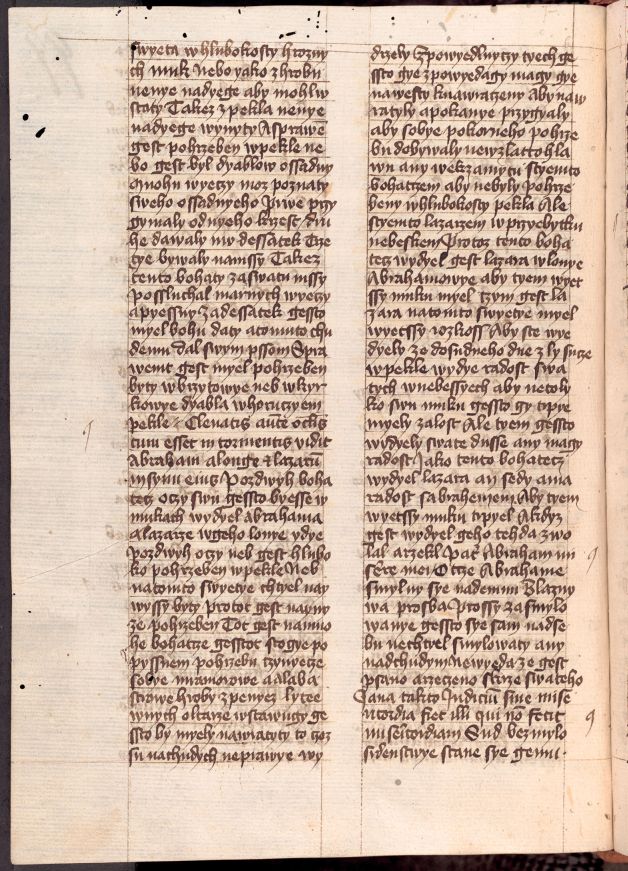 swyeta whlubokosty hrozny
ch muk nebo yako zhrobu
nenye nadyege aby mohl w
staty Takez zpekla nenye
nadyege wynyty Asprawe
gest pohrzeben wpekle ne
bo gest byl dyablow ossadny
mohu wyeczy moz poznaty
sweho ossadnyeho Prwe przy
gymaly odnyeho krzest dru
he dawaly mw dessatek Trze
tye bywaly namssy Takez
tento bohaty zaswatu mssy
possluchal marnych wyeczy
apyessny zadessatek gessto
myel bohu daty atomuto chu
demu dal swym pssom Spra
wemt gest myel pohrzeben
byty wbrzytowye neb wkyr
kowye dyabla whoruczyem
pekle Eleuatis aute oclis
cum esset in tormentis vidit
Abraham alonge et lazaru
insynu eius Pozdwyh boha
tecz oczy swu gessto byesse w
mukach wydyel Abrahama
alazarze wgeho lonye ydye
pozdwyh oczy neb gest hlubo
ko pohrzeben wpekle Neb
natomto swyetye chtyel nay
wyssy byty protoz gest nayny
ze pohrzeben Tot gest namno
he bohacze gesstot stogye po
pyssnem pohrzebu czynyecze
sobye mramorowe a alaba
strowe hroby zpenyez lycee
wnych oltarze wstawugy ge
ssto by myely nawratyty to czoz
su nachudych neprawye wy
drzely Zpowyedlnyczy tyech ge
ssto gye zpowyedagy magy gye
nawesty knawraczeny Aby naw
ratyly apokanye przygyaly
aby sobye pokorneho pohrze
bu dobywaly newzlattohla
wu any wekzamytu styemto
bohatczem aby nebyly pohrze
beny whlubokosty pekla Ale
styemto lazarzem wprzyebytku
nebeskem Protoz tento boha
tecz wydyel gest lazara wlonye
Abrahamowye aby tyem wyet
ssy muku myel czym gest la
zara natomto swyetye myel
wyetssy rozkoss Aby ste wye
dyely ze dosudneho dne zly sucze
wpekle wydye radost swa
tych wnebessyech aby netoly
ko swu muku gessto gy trpye
myely zalost Ale tyem gessto
wydyely swate dusse any magy
radost Jako tento bohatecz
wydyel lazara an sedy ama
radost sabrahemem Aby tyem
wyetssy muku trpyel Akdyz
gest wydyel geho tehda zwo
lal arzekl Pat Abraham mi
sere mei Otcze Abrahame
smyluy sye nademnu Blazny
wa prosba Prossy zasmylo
wanye gessto sye sam nadse
bu nechtyel smylowaty any
nadchudym Newyeda ze gest
psano arzeczeno skrze swateho
Jana takto Judiciu sine mise
ricordia fiet illi qui no fecit
misericordiam Sud bezmylo
syrdenstwye stane sye gemu